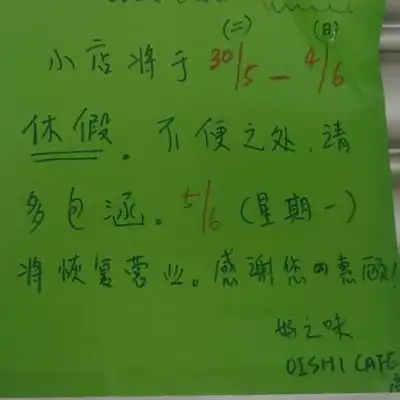 (二) (日)
小店将于 30/5 — 4/6
休假。不便之处,请
多包涵。5/6 (星期一)
将恢复营业。感谢您的惠顾!
好之味
OISHI CAFE